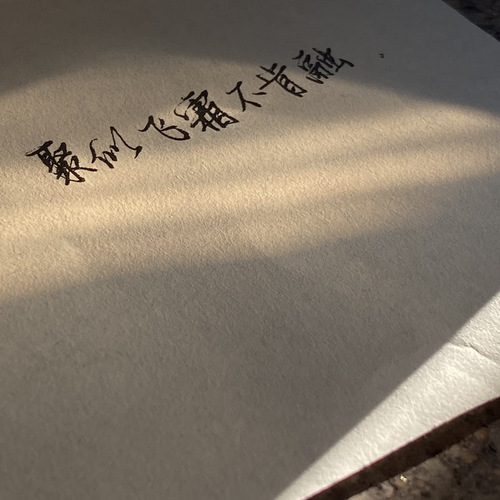 聚似飞霜不肯融